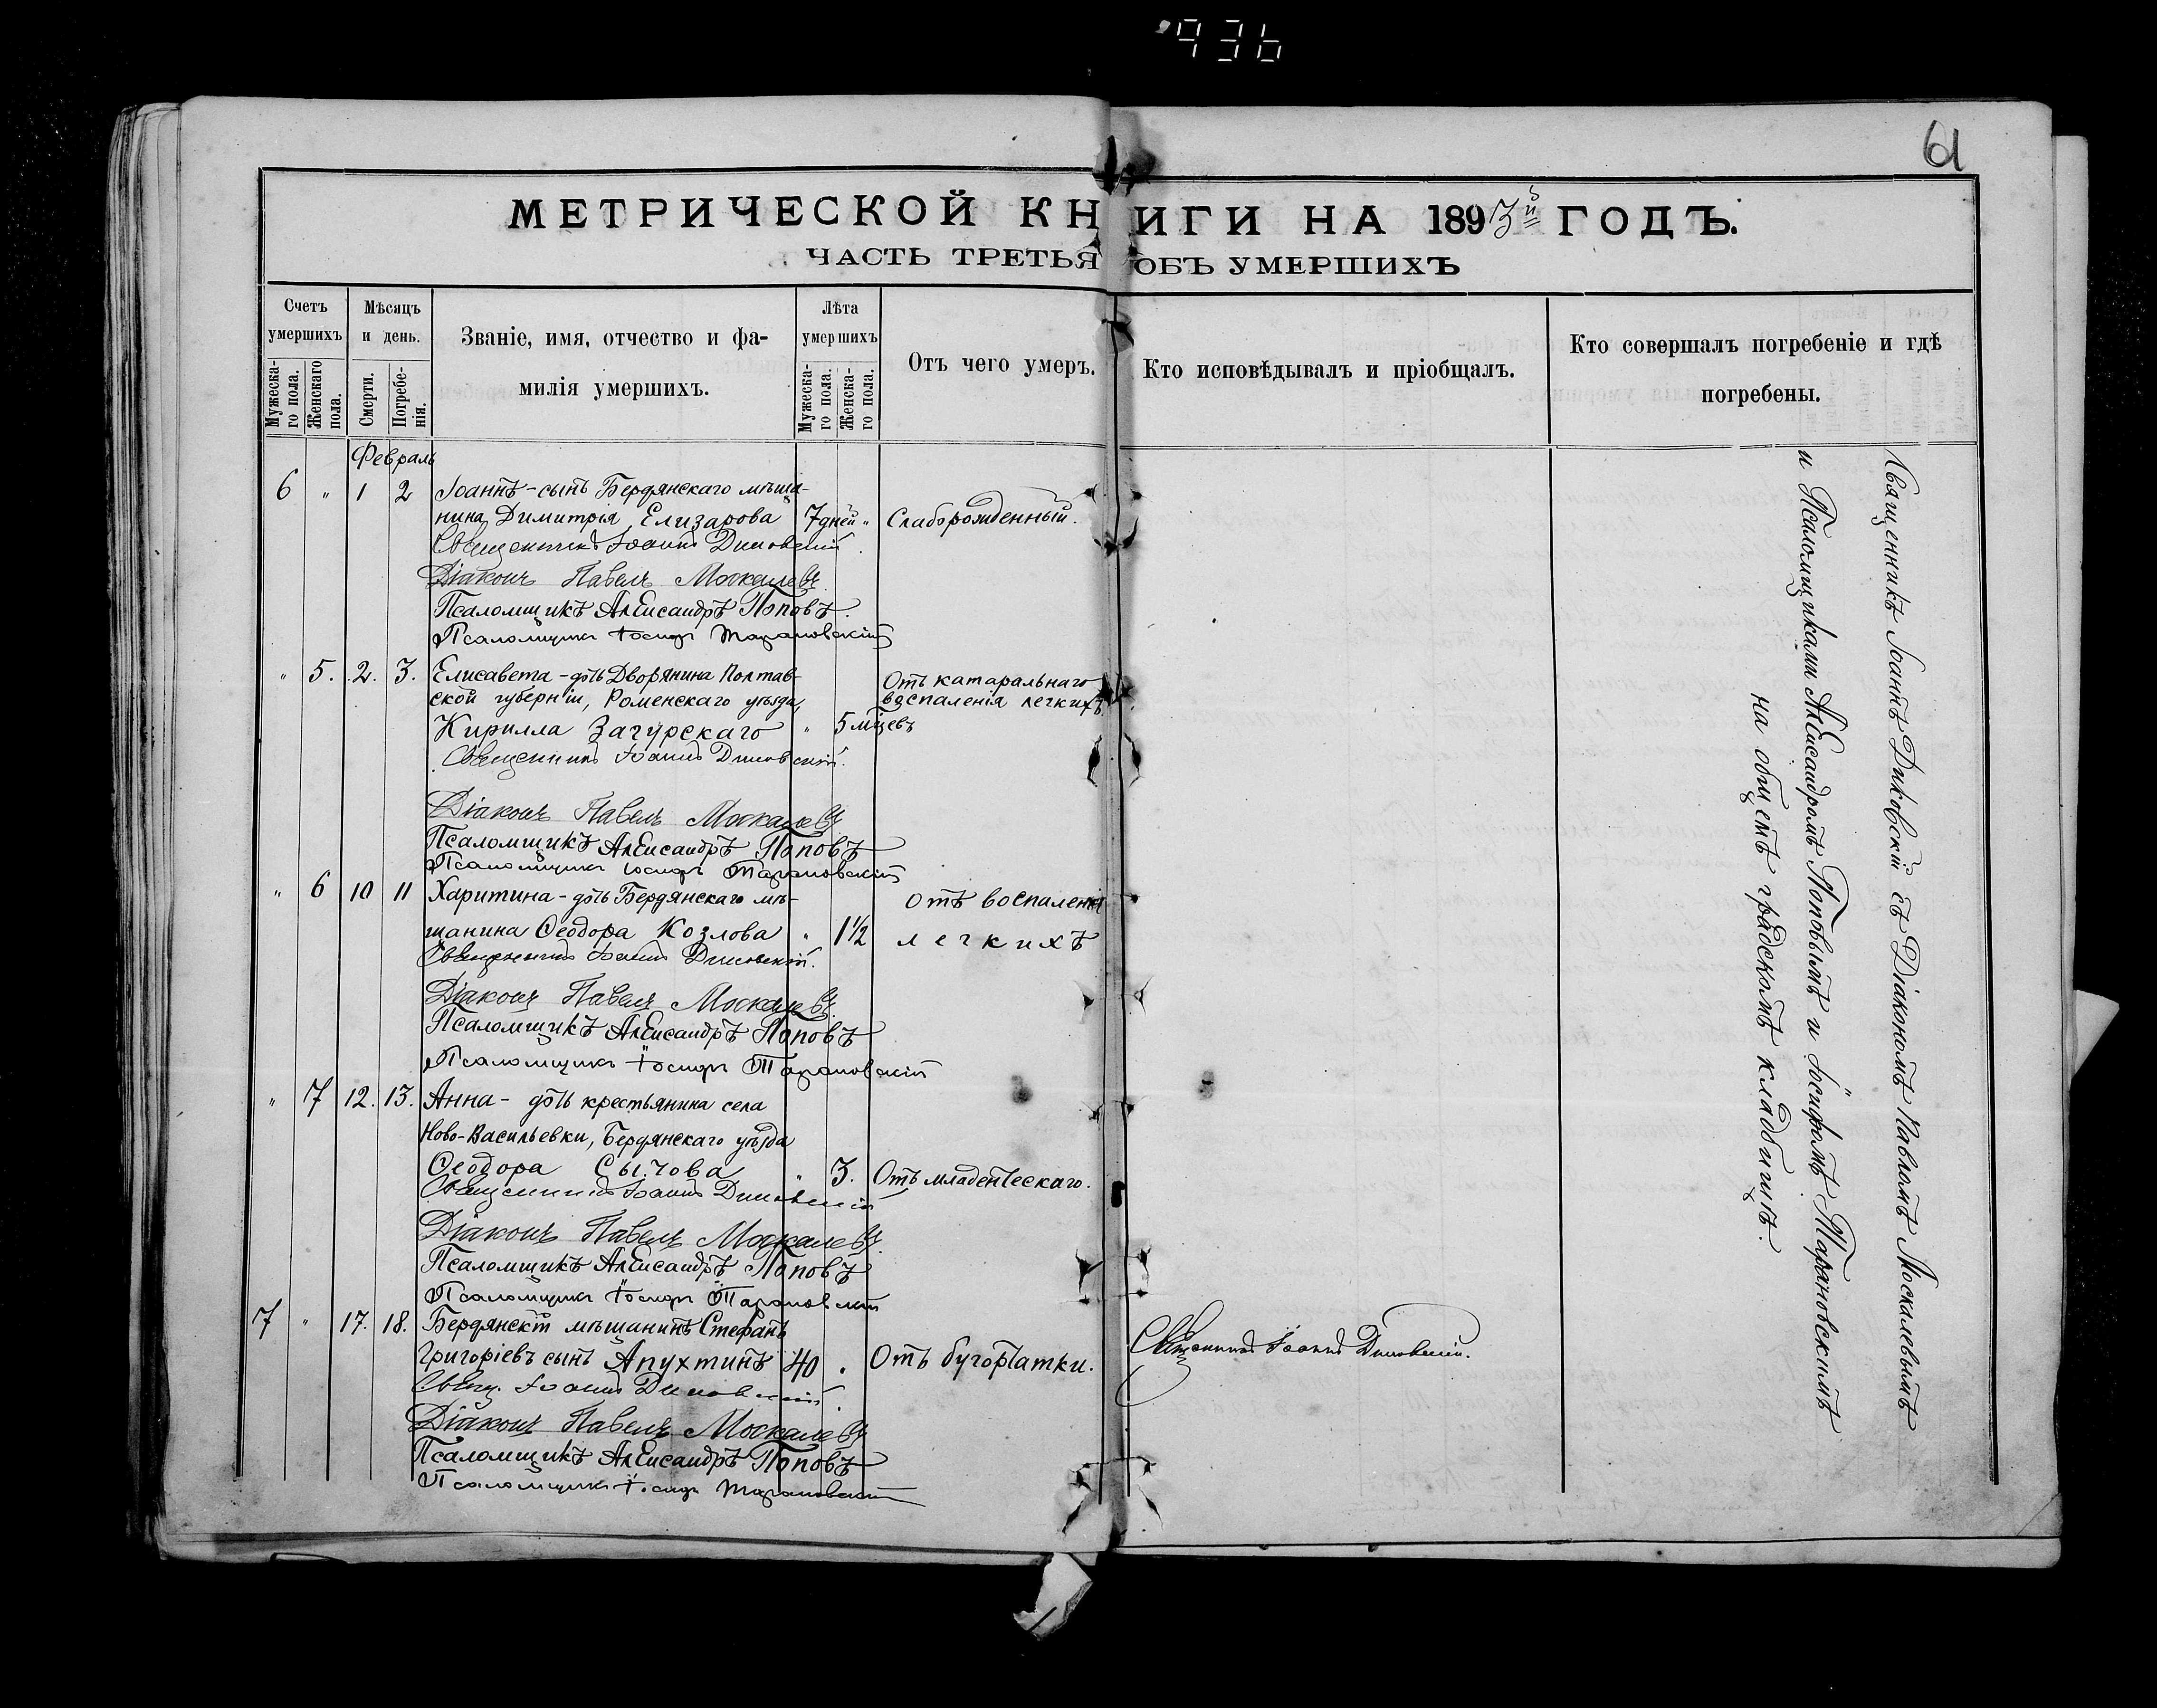 936
61
МЕТРИЧЕСКОЙ КНИГИ НА 1893й ГОДЪ.
ЧАСТЬ ТРЕТЬЯ ОБЪ УМЕРШИХЪ
Счетъ умершихъ
Мужеска-го пола.
Женскаго пола.
Мѣсяцъ и день.
Смерти.
Погребе-нія.
Званіе, имя, отчество и фа-
милія умершихъ.
Лѣта умершихъ
Мужеска-го пола.
Женска-го пола.
Отъ чего умеръ.
Кто исповѣдывалъ и пріобщалъ.
Кто совершалъ погребеніе и гдѣ
погребены.
Февраль
6 " 1 2 Іоаннъ - сынъ Бердянскаго мѣща-
нина Димитрія Елизарова 7 дней " Слаборожденный.
Священникъ Іоаннъ Диковскій.
Діаконъ Павелъ Москалевъ
Псаломщикъ Александръ Поповъ.
Псаломщикъ Іосифъ Тарановскій
" 5. 2. 3. Елисавета - дочь Дворянина Полтав-
ской губерніи, Роменскаго уѣзда,
Кирилла Загурскаго " 5 мѣцевъ
Отъ катаральнаго
воспаленія легкихъ.
Священникъ Іоаннъ Диковскій.
Діаконъ Павелъ Москалевъ
Псаломщикъ Александръ Поповъ
Псаломщикъ Іосифъ Тарановскій
" 6 10 11 Харитина - дочь Бердянскаго мѣ- Отъ воспаленія
щанина Ѳеодора Козлова " 1½ легкихъ
Священникъ Іоаннъ Диковскій.
Діаконъ Павелъ Москалевъ.
Псаломщикъ Александръ Поповъ
Псаломщикъ Іосифъ Тарановскій
" 7 12. 13. Анна - дочь крестьянина села
Ново-Васильевки, Бердянскаго уѣзда
Ѳеодора Сычова " 3. Отъ младенческаго.
Священникъ Іоаннъ Диковскій
Діаконъ Павелъ Москалевъ.
Псаломщикъ Александръ Поповъ
Псаломщикъ Іосифъ Тарановскій
7 " 17. 18. Бердянскій мѣщанинъ Стефанъ
Григоріевъ сынъ Апухтинъ 40 . Отъ бугорчатки. Священникъ Іоаннъ Диковскій.
Свящ. Іоаннъ Диковскій.
Діаконъ Павелъ Москалевъ
Псаломщикъ Александръ Поповъ
Псаломщикъ Іосифъ Тарановскій
Священникъ Іоаннъ Диковскій съ Діакономъ Павломъ Москалевымъ
и Псаломщиками Александромъ Поповымъ и Іосифомъ Тарановскимъ
на общемъ градскомъ кладбищѣ.